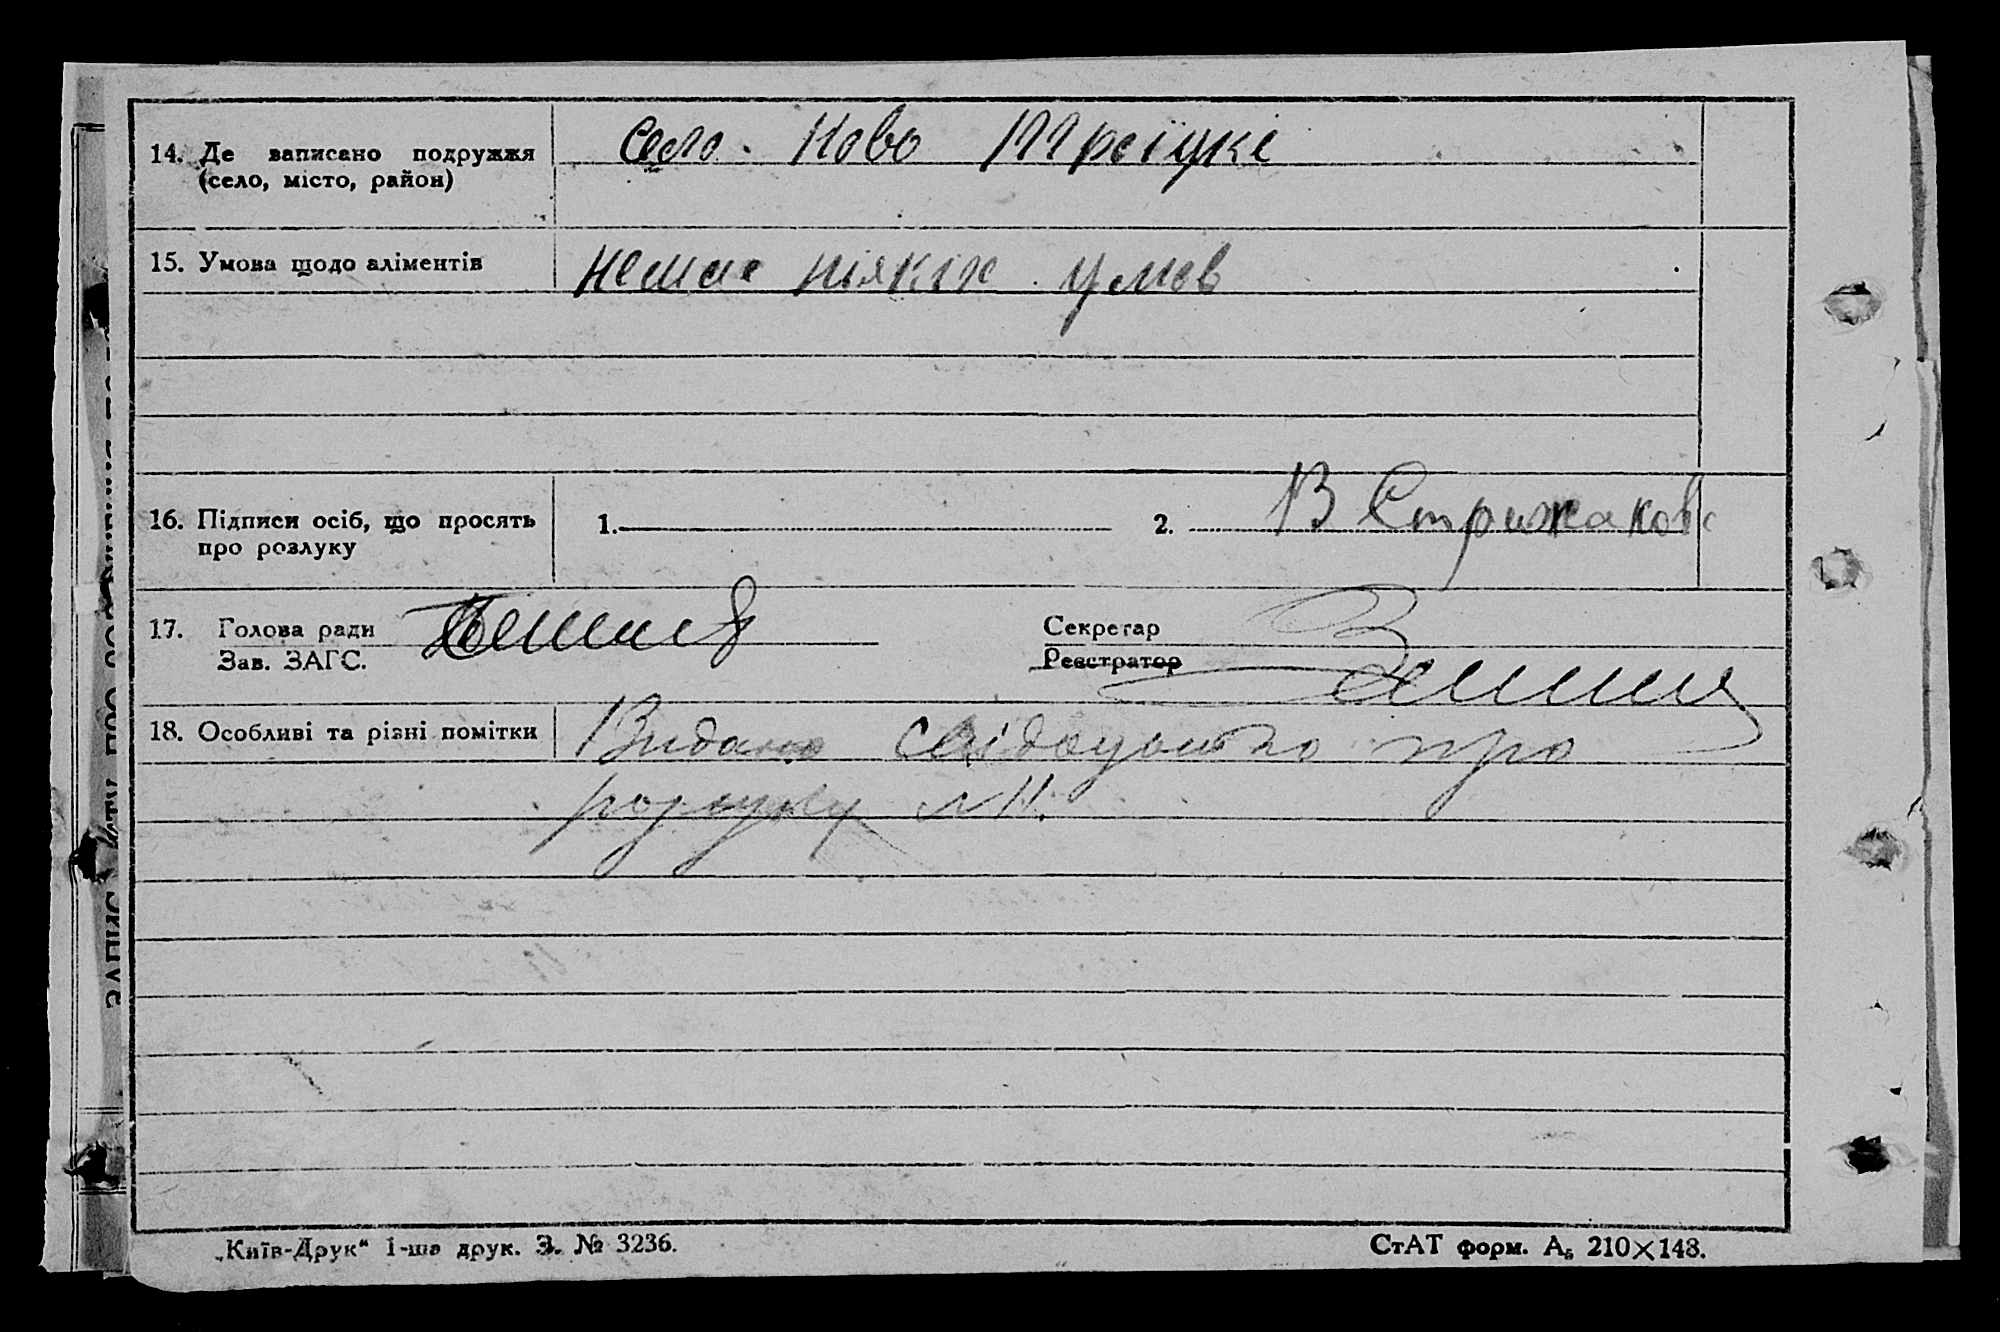 14. Де записано подружжя село Ново Троїцкі
(село, місто, район)
15. Умова щодо аліментів немає ніяких умов
16. Підписи осіб, що просять 1. 2. В Стрижакова
про розлуку
17. Голова ради Секретар
Зав. ЗАГС. Реєстратор
18. Особливі та різні помітки Видано свідоцтво про
розлуку
„Київ-Друк“ 1-ша друк. З. № 3236. СтАТ форм. А₅ 210×148.